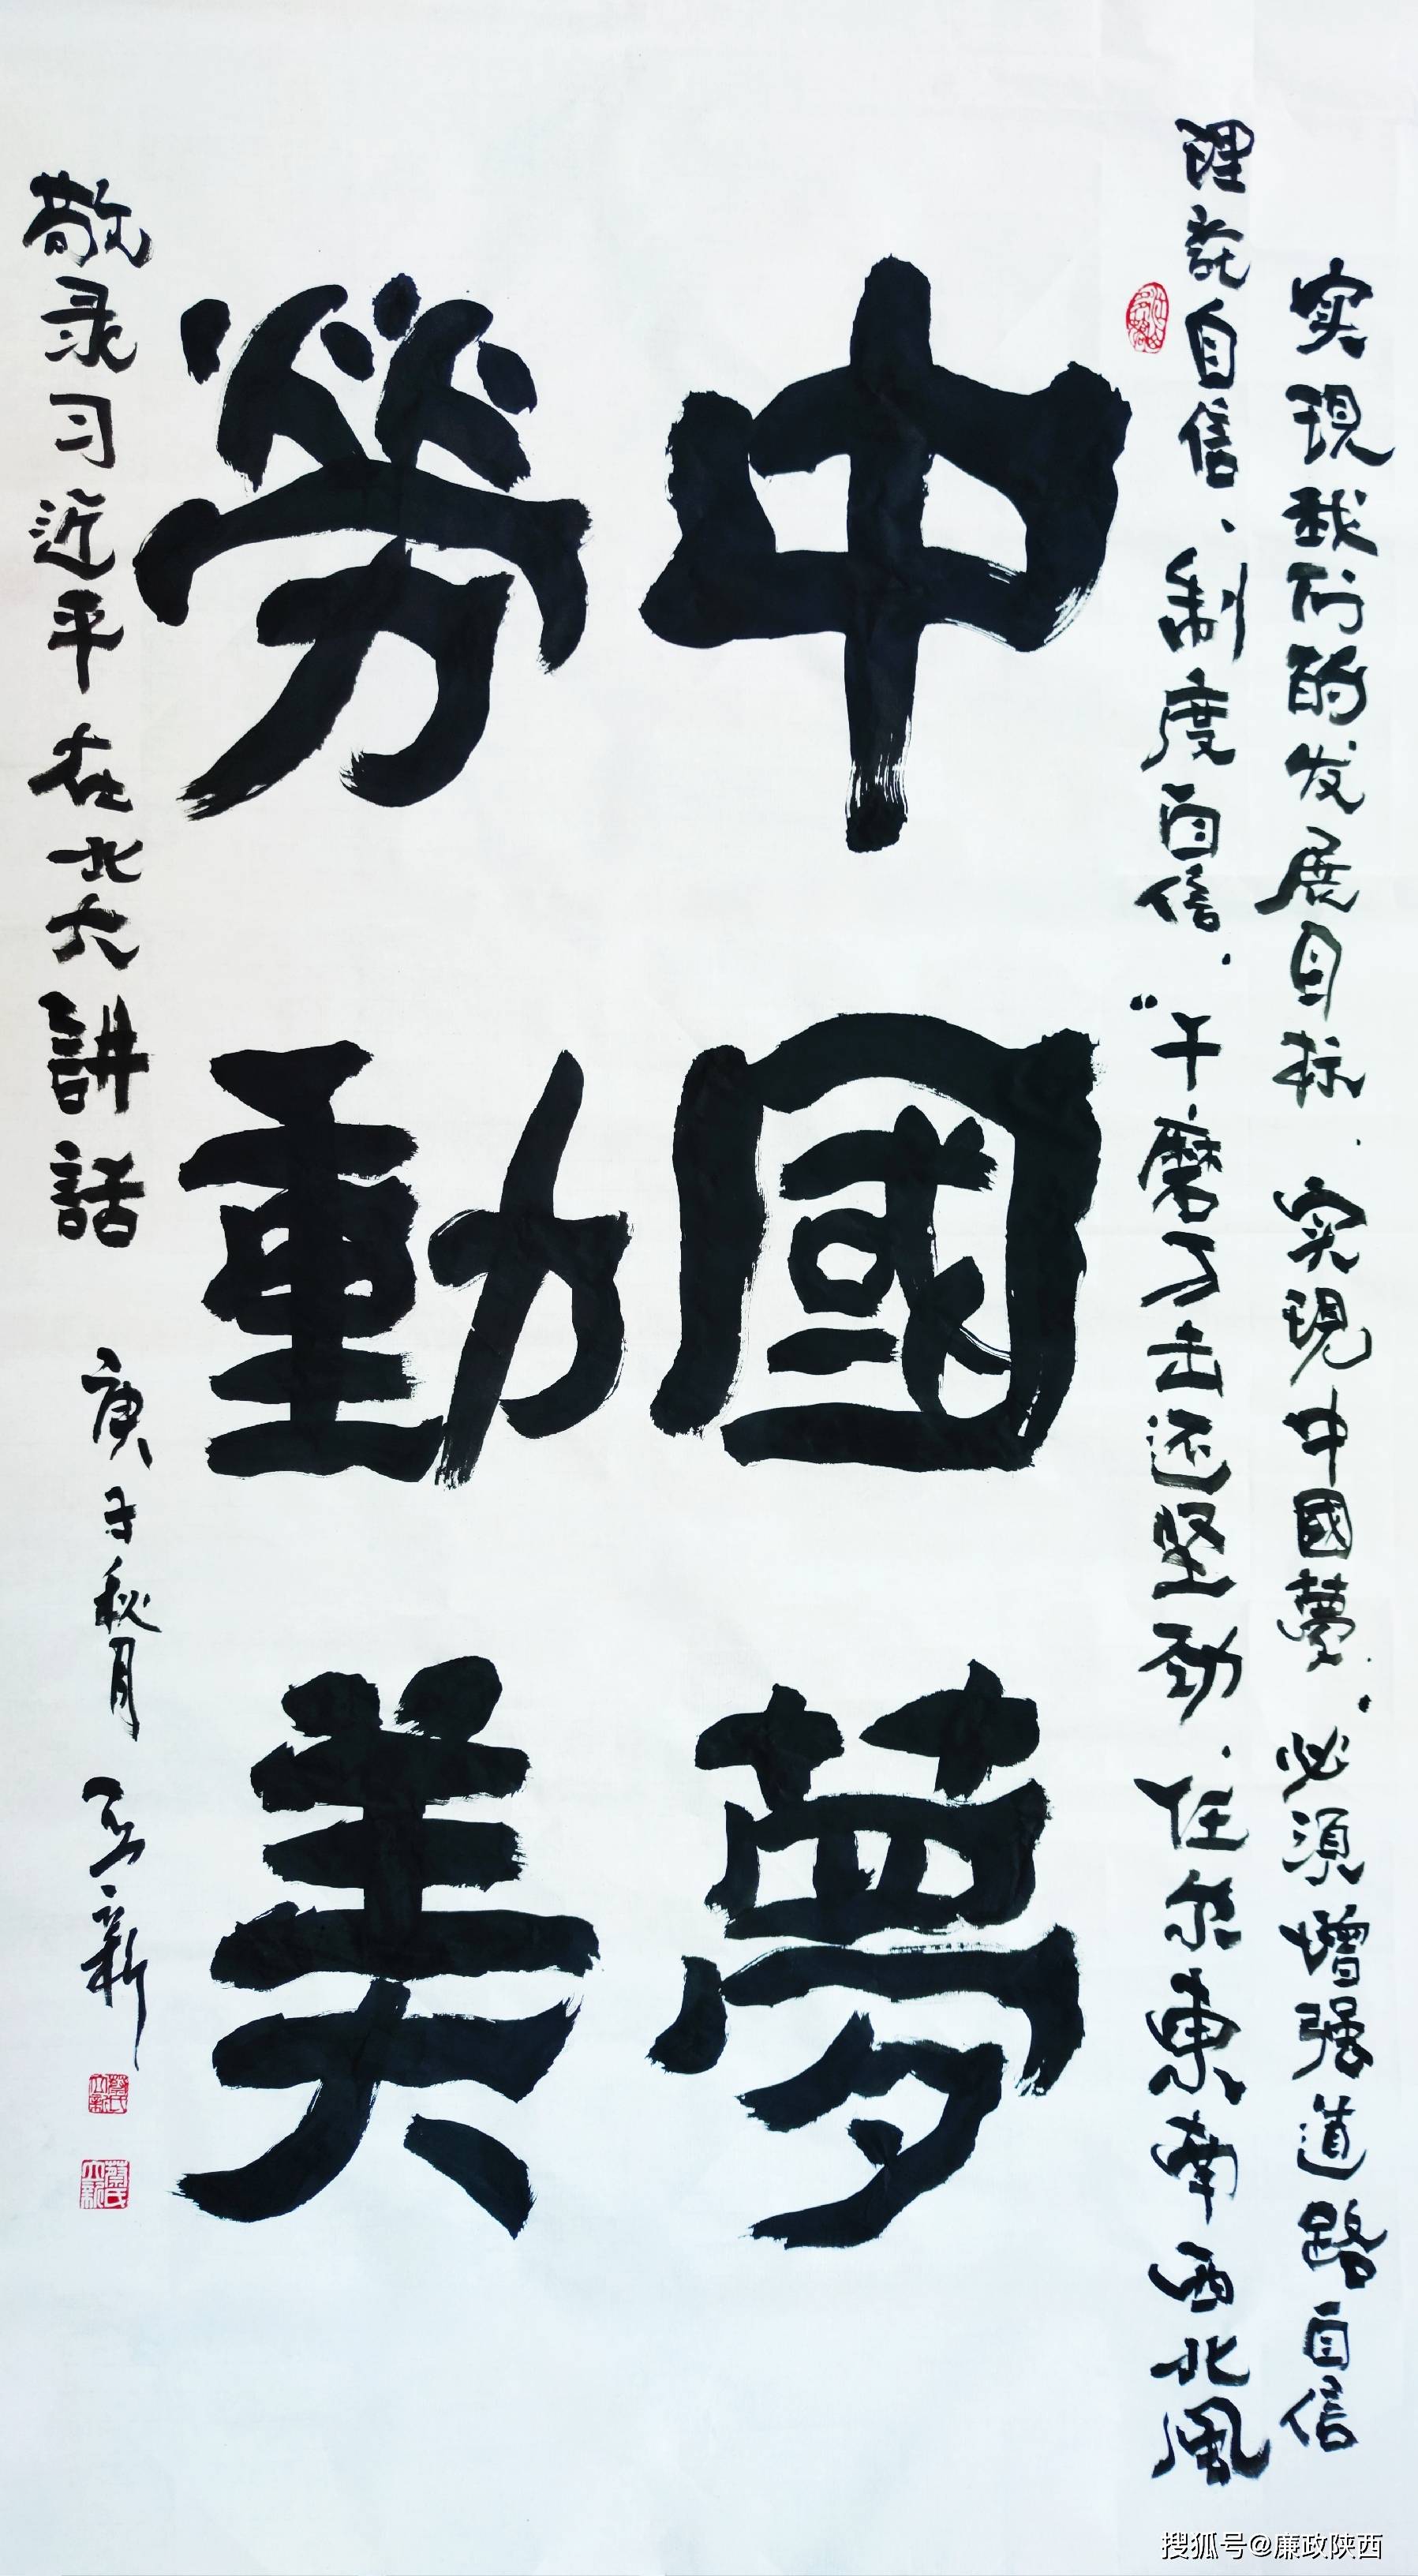 实現我们的发展目标、实現中國夢、必须增强道路自信
理論自信、制度自信、“千磨万击还坚劲、任尔東南西北風
中國夢
勞動美
敬录习近平在北大讲話
庚子秋月 立新
蔡氏立新
蔡氏立新
搜狐号@廉政陕西